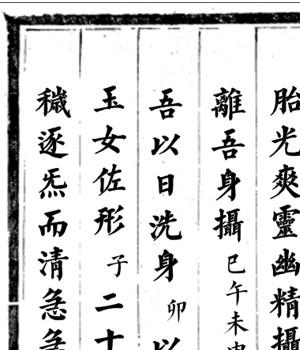 胎光爽靈幽精攝
離吾身攝己午未申
吾以日洗身卯以
玉女佐形子二十
穢逐炁而清急急